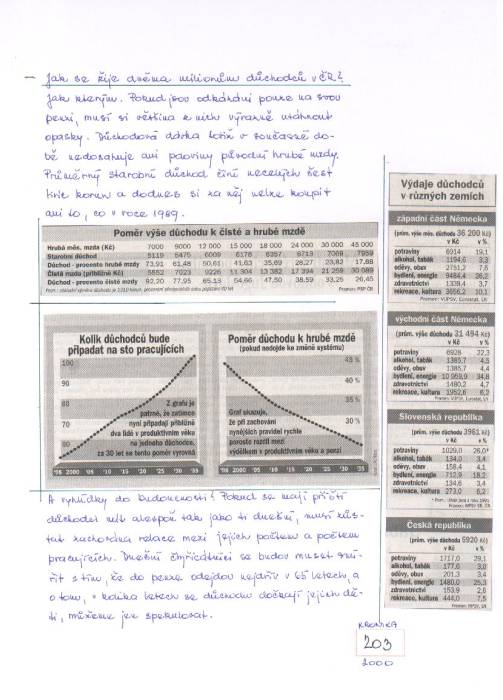 – Jak se žije dvěma milionům důchodců v ČR?
Jak kterým. Pokud jsou odkázáni pouze na svou
penzi, musí si většina z nich výrazně utáhnout
opasky. Důchodová dávka totiž v současné do-
bě nedosahuje ani poloviny původní hrubé mzdy.
Průměrný starobní důchod činí necelých šest
tisíc korun a dodnes si za něj nelze koupit
ani to, co v roce 1989.
Poměr výše důchodu k čisté a hrubé mzdě
Hrubá měs. mzda (Kč) 7000 9000 12 000 15 000 18 000 24 000 30 000 45 000
Starobní důchod 5119 5475 6009 6178 6357 6713 7069 7959
Důchod - procento hrubé mzdy 73,91 61,48 50,61 41,63 35,69 28,27 23,82 17,88
Čistá mzda (přibližně Kč) 5552 7023 9226 11 304 13 382 17 394 21 259 30 089
Důchod - procento čisté mzdy 92,20 77,95 65,13 54,66 47,50 38,59 33,25 26,45
Kolik důchodců bude
připadat na sto pracujících
100
90
80
70
60
50
Z grafu je
patrné, že zatímco
nyní připadají přibližně
dva lidé v produktivním věku
na jednoho důchodce,
za 30 let se tento poměr vyrovná
'98 2000 '05 '10 '15 '20 '25 '30 '35
Poměr důchodu k hrubé mzdě
(pokud nedojde ke změně systému)
45 %
40 %
35 %
30 %
Graf ukazuje,
že při zachování
nynějších pravidel rychle
poroste rozdíl mezi
výdělkem v produktivním věku a penzí
'98 2000 '05 '10 '15 '20 '25 '30 '35
A vyhlídky do budoucnosti? Pokud se mají příští
důchodci mít alespoň tak jako ti dnešní, musí zůs-
tat zachována relace mezi jejich počtem a počtem
pracujících. Dnešní čtyřicátníci se budou muset smí-
řit s tím, že do penze odejdou nejdřív v 65 letech, a
o tom, v kolika letech se důchodu dočkají jejich dě-
ti, můžeme jen spekulovat.
Výdaje důchodců
v různých zemích
západní část Německa
(prům. výše důchodu měs. 36 200 Kč)
v Kč v %
potraviny 6914 19,1
alkohol, tabák 1194,6 3,3
oděvy, obuv 2751,2 7,6
bydlení, energie 9484,4 26,2
zdravotnictví 1339,4 3,7
rekreace, kultura 3656,2 10,1
východní část Německa
(prům. výše důchodu 31 494 Kč)
v Kč v %
potraviny 6928 22,3
alkohol, tabák 1385,7 4,5
oděvy, obuv
bydlení, energie 10 959,9 34,8
zdravotnictví 1480,2 4,7
rekreace, kultura 1952,6 6,2
Slovenská republika
(prům. výše důchodu 3961 Kč)
v Kč v %
potraviny 1029,0 26,0*
alkohol, tabák 134,0 3,4
oděvy, obuv 158,4 4,1
bydlení, energie 712,9 18,2
zdravotnictví 134,6 3,4
rekreace, kultura 273,0 6,2
Česká republika
(prům. výše důchodu 5920 Kč)
v Kč v %
potraviny 1717,0 29,1
alkohol, tabák 177,6 3,0
oděvy, obuv 201,3 3,4
bydlení, energie 1480,0 25,3
zdravotnictví 153,9 2,6
rekreace, kultura 444,0 7,5
KRONIKA
203
2000